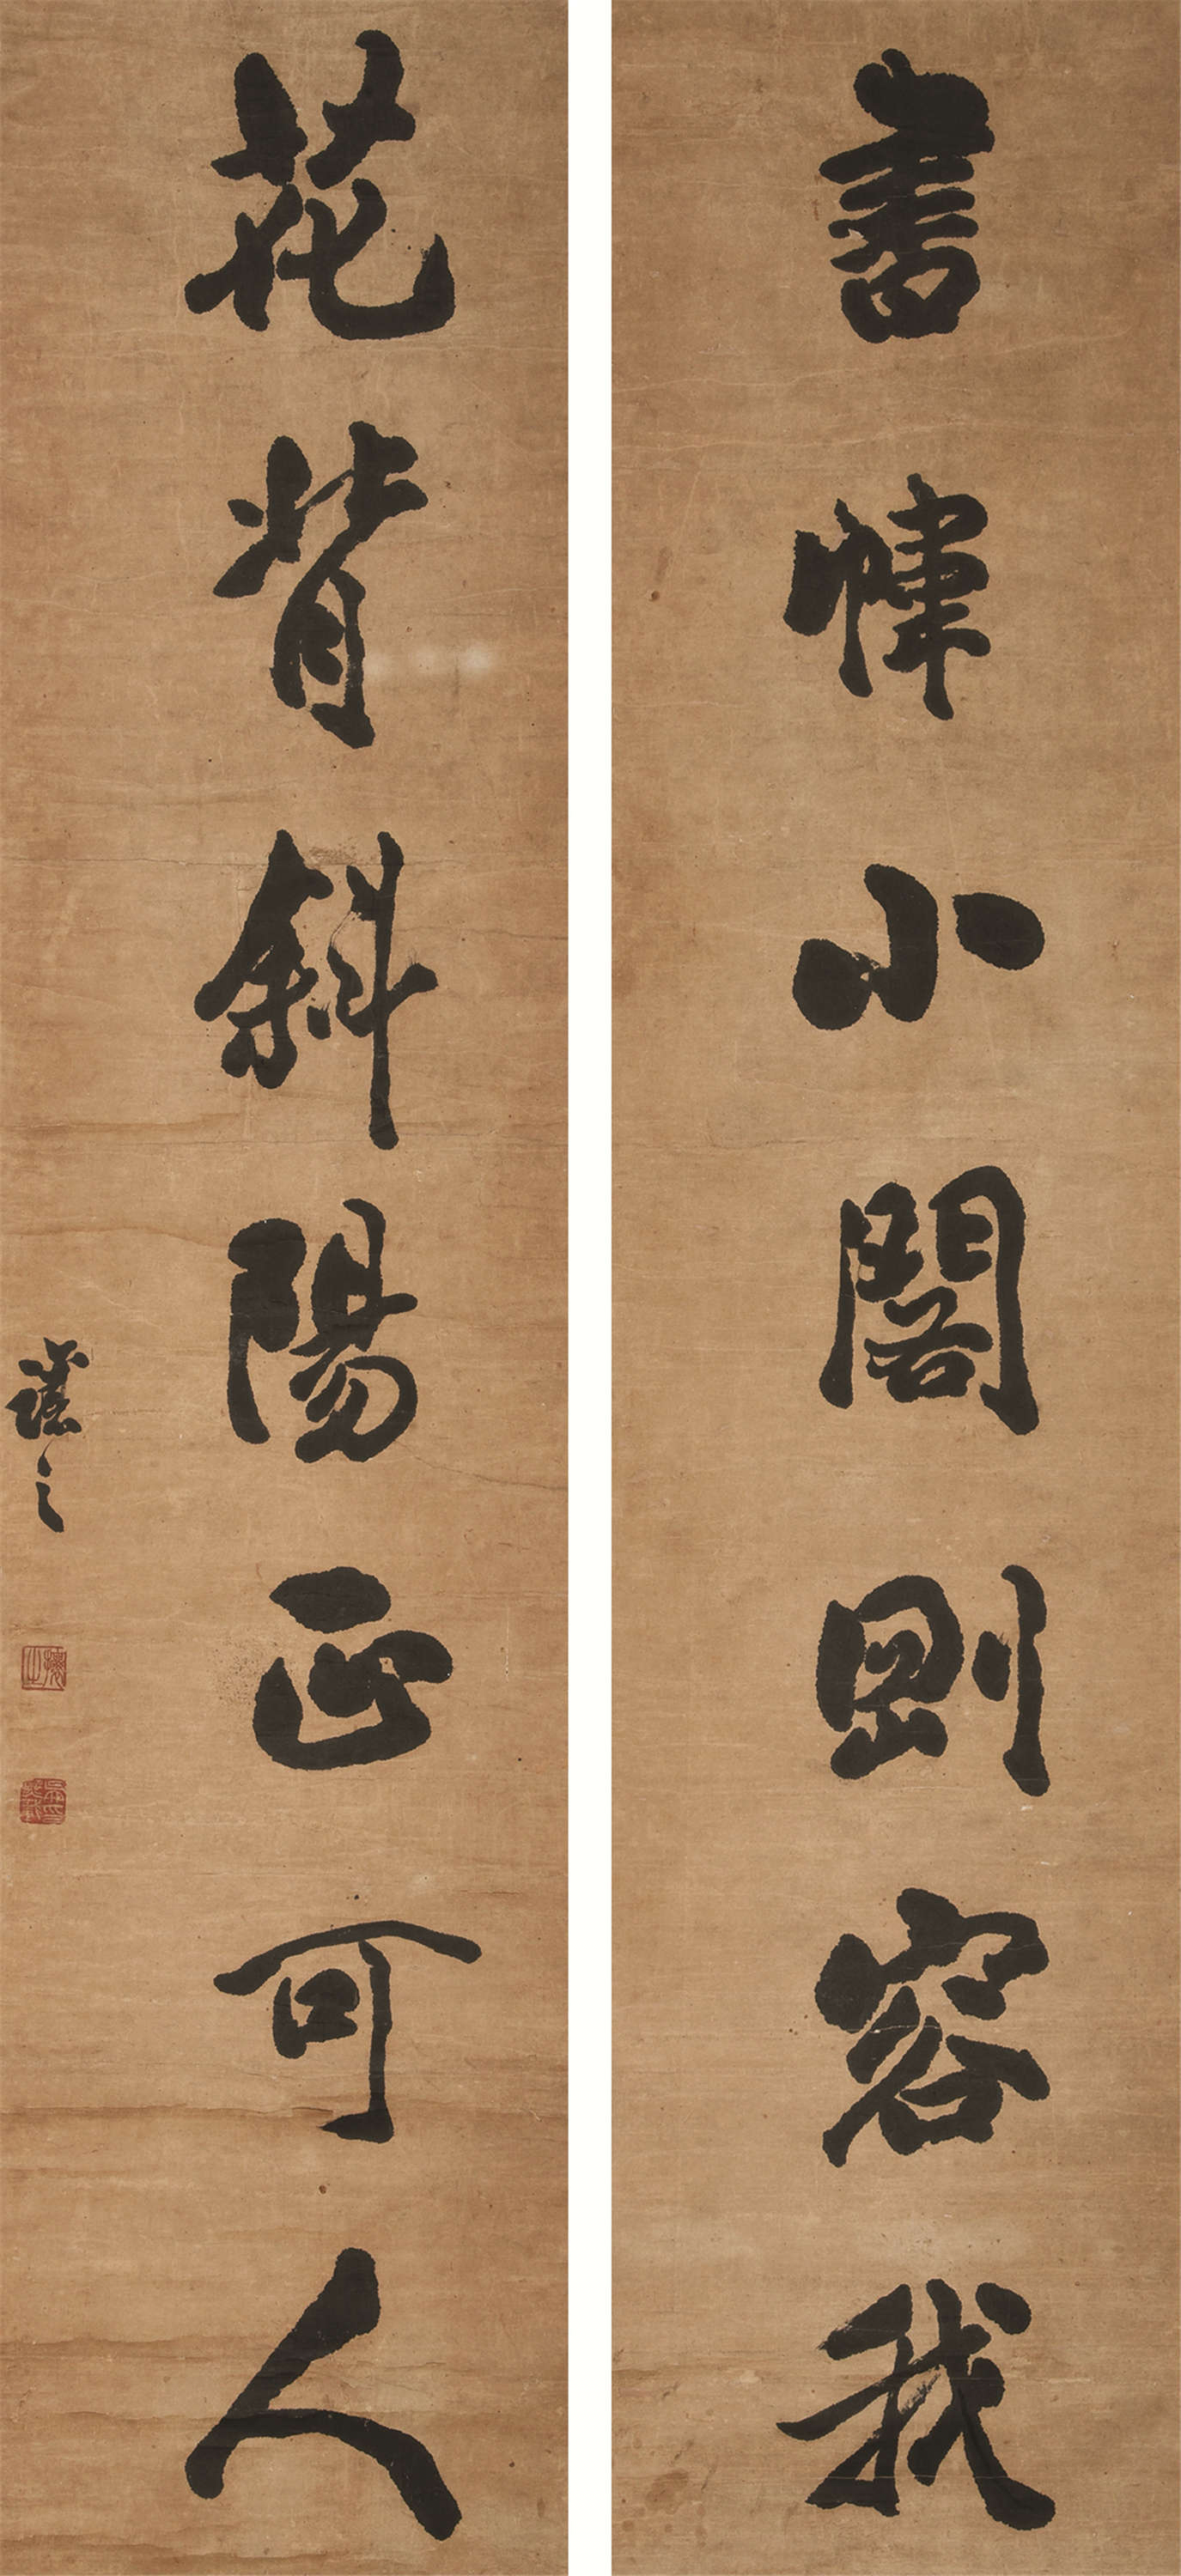 書幃小閣則容我
花背斜陽正可人
讓之